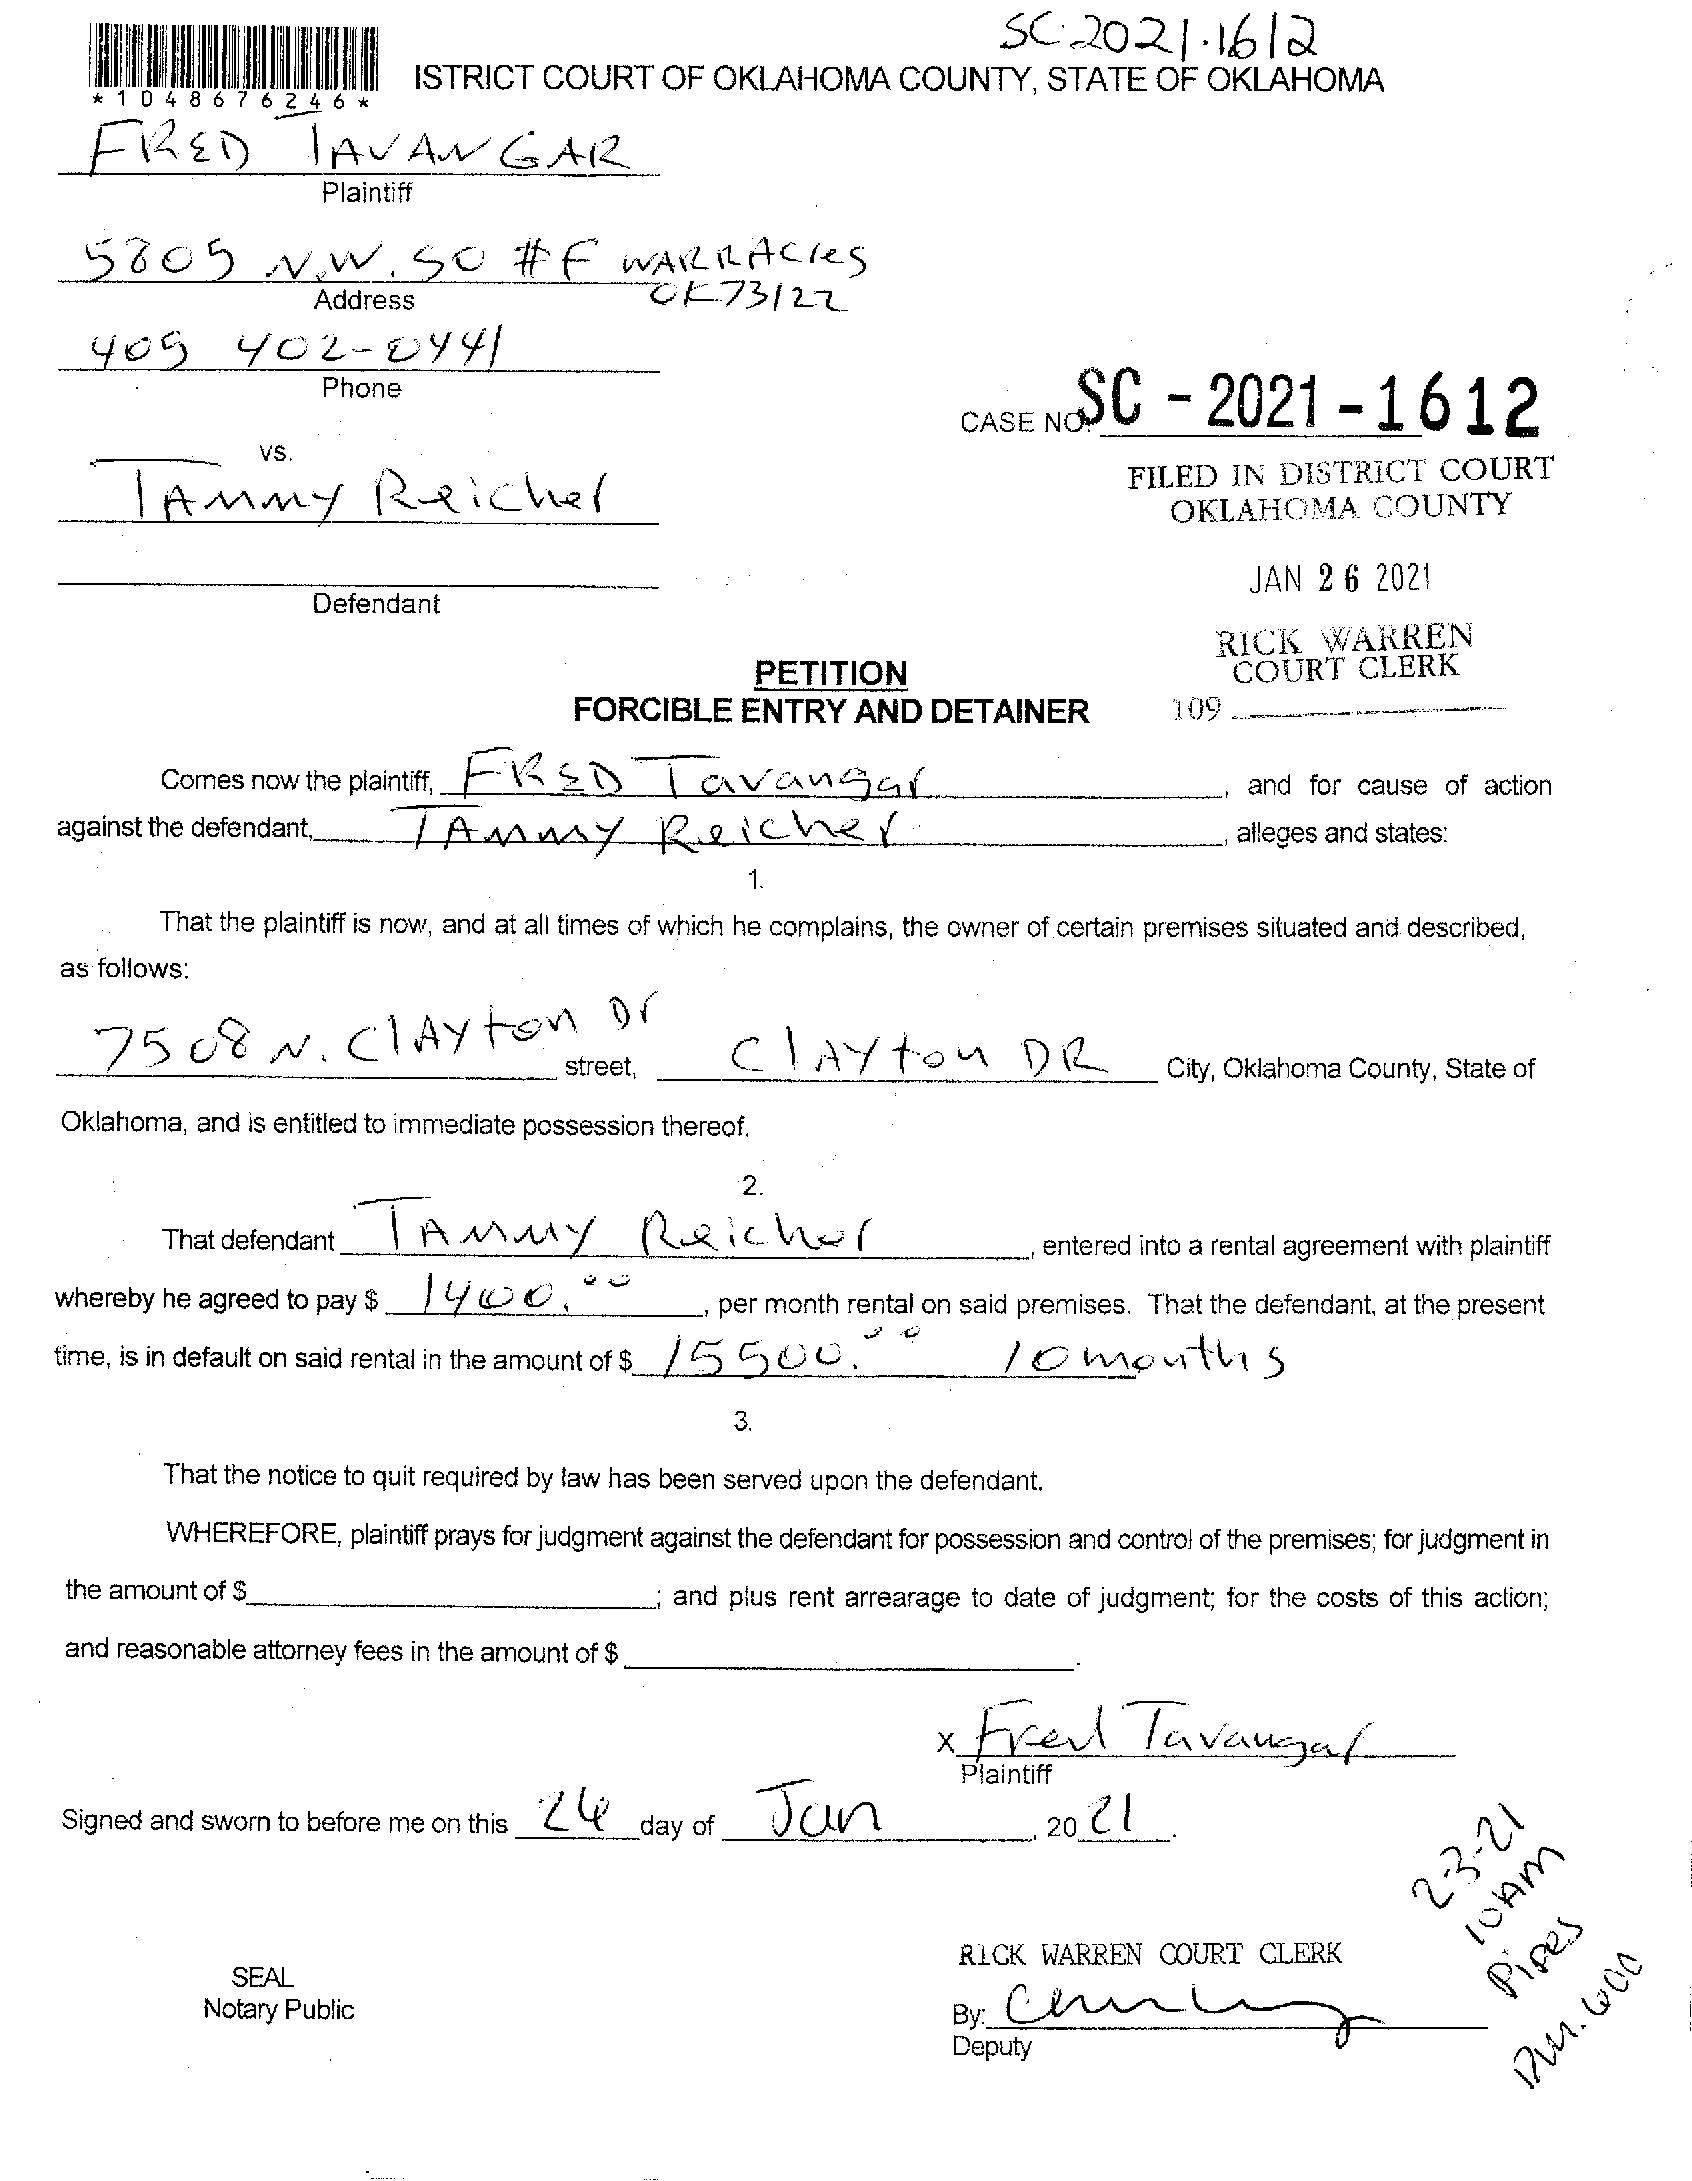 SC-2021-1612
ISTRICT COURT OF OKLAHOMA COUNTY, STATE OF OKLAHOMA
*1048676246*
FRED TAVANGAR
Plaintiff
5805 N.W. 50 #F WARRACres
Address OK 73122
405 402-0441
Phone
CASE NO. SC - 2021 - 1612
vs.
FILED IN DISTRICT COURT
TAMMY Reicher
OKLAHOMA COUNTY
JAN 26 2021
Defendant
RICK WARREN
COURT CLERK
PETITION
FORCIBLE ENTRY AND DETAINER
109
Comes now the plaintiff, FRED Tavangar, and for cause of action
against the defendant, TAMMY Reicher, alleges and states:
1.
That the plaintiff is now, and at all times of which he complains, the owner of certain premises situated and described,
as follows:
7508 N. ClAyton Dr street, ClAyton DR City, Oklahoma County, State of
Oklahoma, and is entitled to immediate possession thereof.
2.
That defendant TAMMY Reicher, entered into a rental agreement with plaintiff
whereby he agreed to pay $ 1400.00, per month rental on said premises. That the defendant, at the present
time, is in default on said rental in the amount of $ 15500.00 10 months
3.
That the notice to quit required by law has been served upon the defendant.
WHEREFORE, plaintiff prays for judgment against the defendant for possession and control of the premises; for judgment in
the amount of $ ; and plus rent arrearage to date of judgment; for the costs of this action;
and reasonable attorney fees in the amount of $ .
x Fred Tavangar
Plaintiff
Signed and sworn to before me on this 26 day of Jan, 20 21.
2-3-21
10AM
Pipes
Rm. 600
RICK WARREN COURT CLERK
SEAL
Notary Public
By:
Deputy